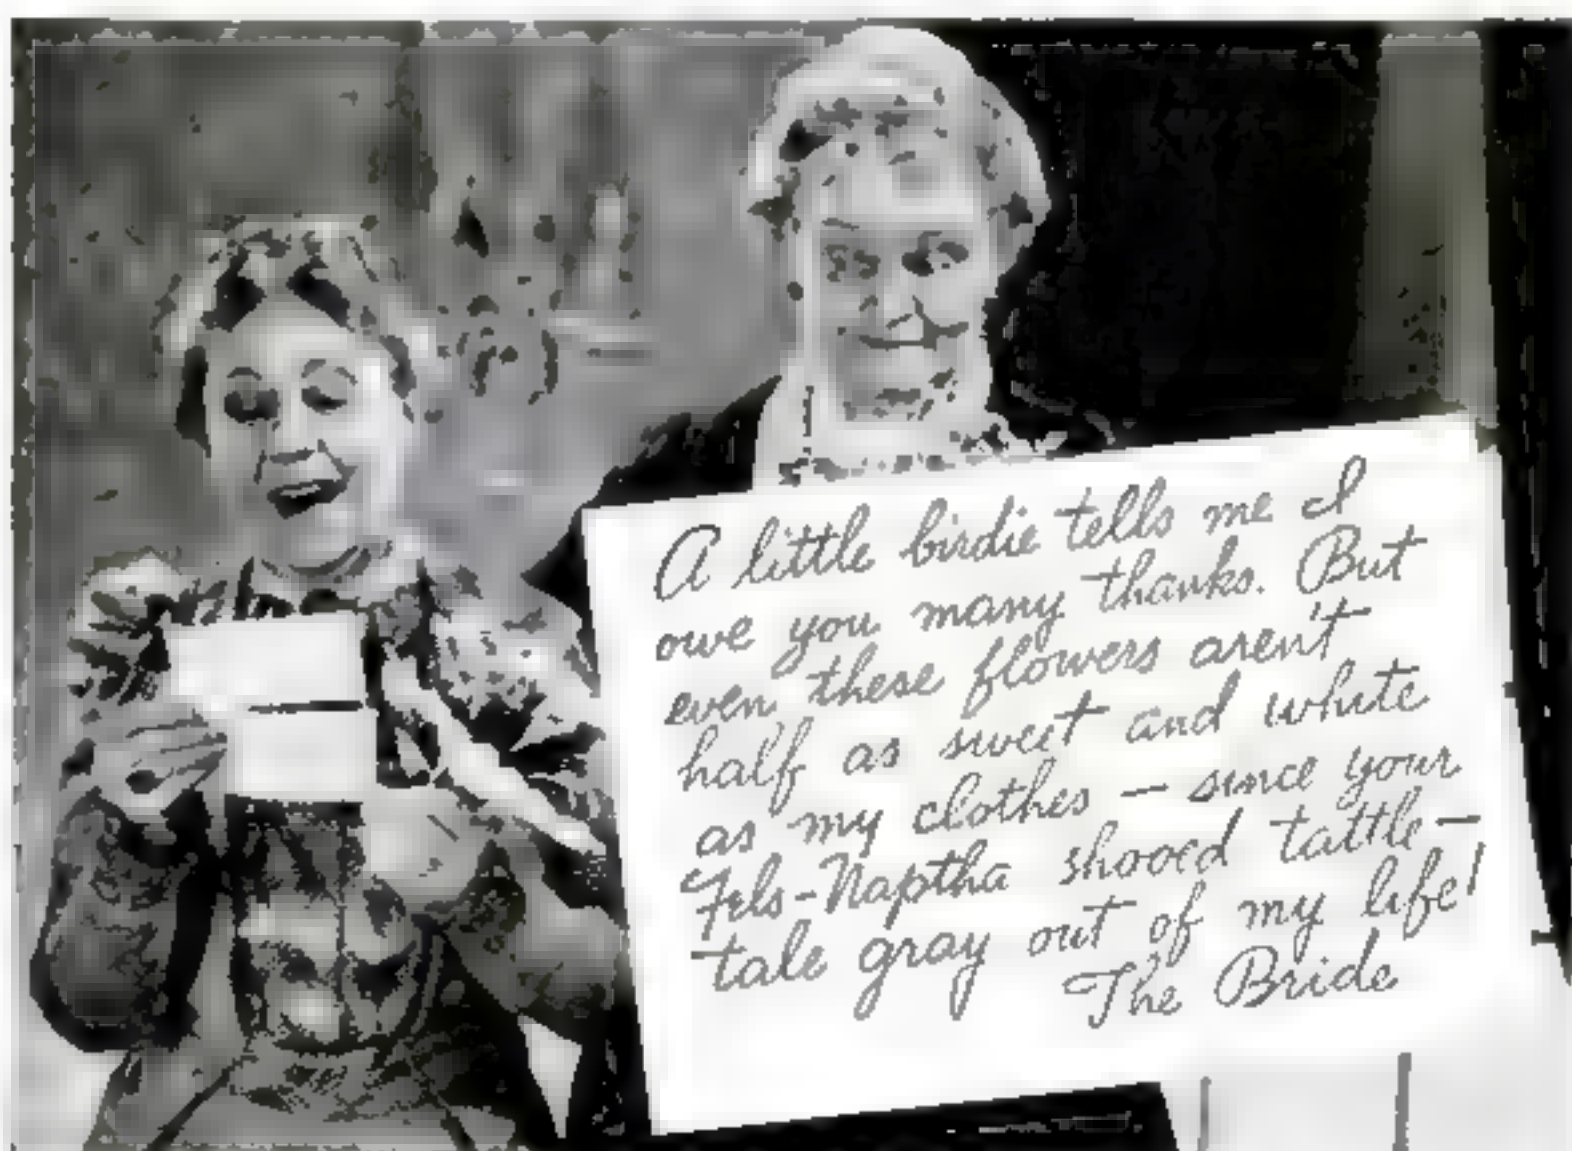 A little birdie tells me I
owe you many thanks. But
even these flowers aren't
half as sweet and white
as my clothes — since your
Fels-Naptha shooed tattle-
tale gray out of my life!
The Bride